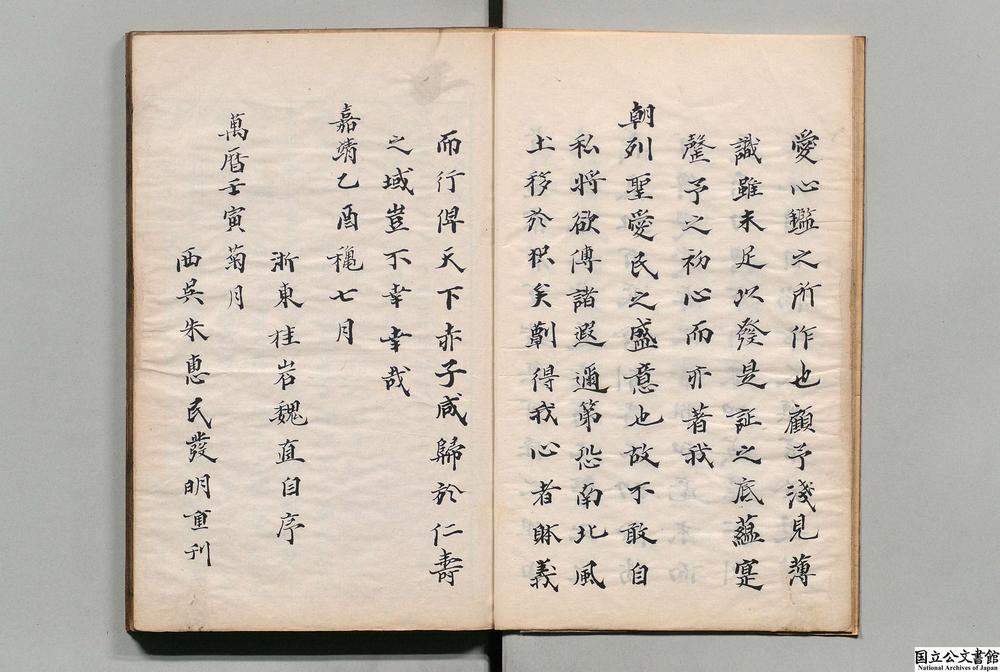 愛心鑑之所作也顧予淺見薄
識雖未足以發是証之底蘊寔
罄予之初心而亦著我
朝列聖愛民之盛意也故不敢自
私將欲傳諸遐邇第恐南北風
土移於枳矣剸得我心者賕義
而行俾天下赤子咸歸於仁壽
之域豈不幸幸哉
嘉靖乙酉龝七月
浙東桂岩魏直自序
萬曆壬寅菊月
西吳朱惠民發明重刊
国立公文書館
National Archives of Japan